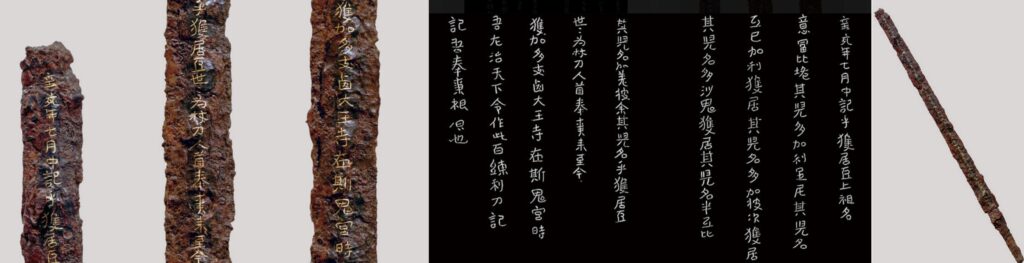 辛亥年七月中記乎獲居臣
乎獲居臣世々為杖刀人首奉事来至今
獲加多支鹵大王寺在斯鬼宮時
辛亥年七月中記乎獲居臣上祖名
意富比垝其児多加利足尼其児名
弖已加利獲居其児名多加披次獲居
其児名多沙鬼獲居其児名半弖比
其児名加差披余其児名乎獲居臣
世々為杖刀人首奉事来至今
獲加多支鹵大王寺在斯鬼宮時
吾左治天下令作此百練利刀記
記吾奉事根原也